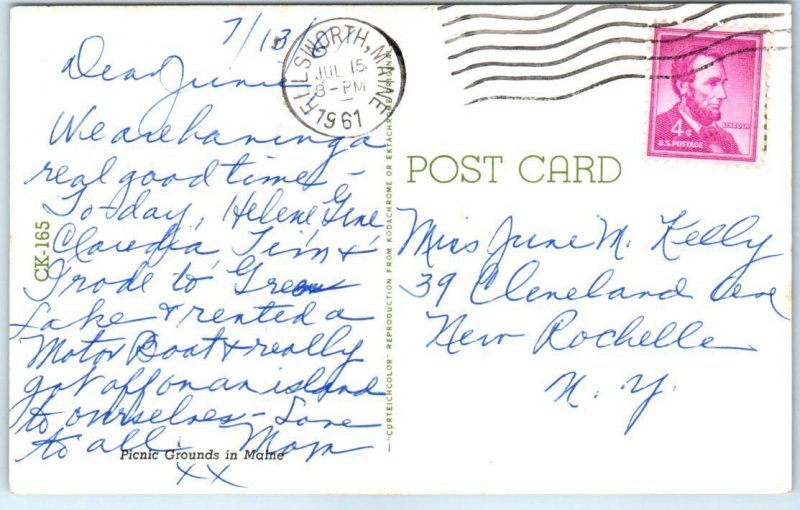 7/13
Dear June
We are having a
real good time –
To-day, Helene, Gene,
Claudia, Tim, &
I rode to Green
Lake & rented a
Motor Boat & really
got off on an island
to ourselves – Love
to all. Mom
XX
Picnic Grounds in Maine
CK-165
"CURTEICHCOLOR" REPRODUCTION FROM KODACHROME OR EKTACHROME ORIGINAL
ELLSWORTH, MAINE
JUL 15
8 - PM
1961
LINCOLN
4¢
U.S. POSTAGE
POST CARD
Miss June M. Kelly
39 Cleveland Ave
New Rochelle
N. Y.